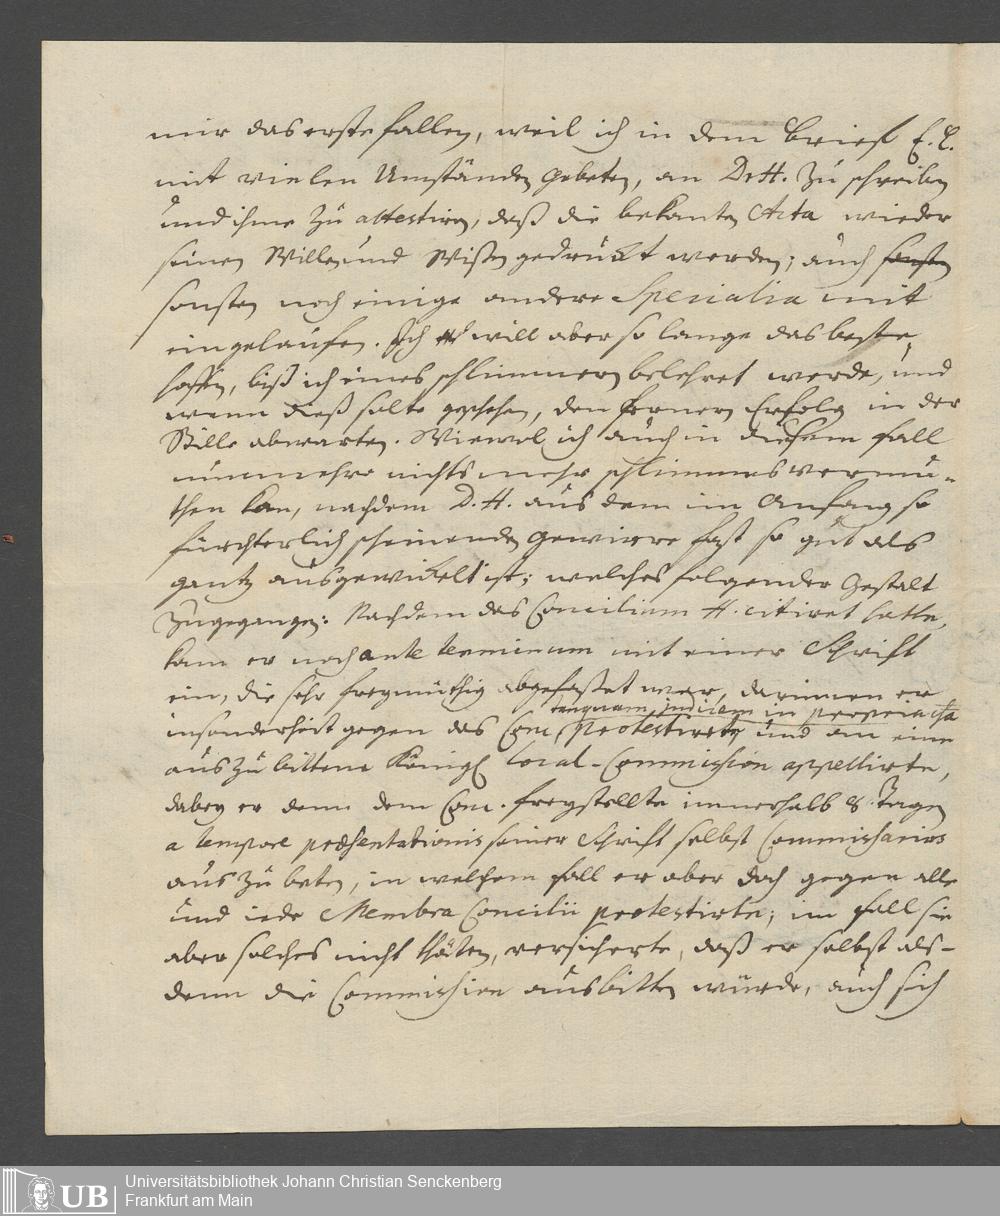 mir das erste fallen, weil ich in dem Brief E. E.
mit vielen Umständen gebeten, an Dr H. zu schreiben
und ihme zu attestiren, daß die bekanten Acta wieder
seinen Willen und Wißen gedruckt worden; auch sonsten
sonsten noch einige andere Specialia mit
eingelaufen. Ich will aber so lange das beste
hoffen, biß ich eines schlimmern belehret werde, und
wenn dieß solte geschehen, den fernern Erfolg in der
Stille abwarten. Wiewol ich auch in diesem fall
nunmehro nichts mehr schlimmes vermu-
then kan, nachdem D. H. aus dem im Anfang so
fürchterlich scheinenden Gewirre fast so gut als
gantz ausgewickelt ist; welches folgender Gestalt
zugegangen: Nachdem das Concilium H. citiret hatte,
kam er noch ante terminum mit einer Schrift
ein, die sehr freymüthig abgefasset war, darinnen er
tanquam judicem in propria causa
insonderheit gegen das Conc. protestirte und an eine
auszubittene Königl. Local-Commission appellirte,
dabey er denn dem Conc. freystellte innerhalb 8. Tagen
a tempore præsentationis seiner Schrift selbst Commissarios
auszubeten, in welchem fall er aber doch gegen alle
und iede Membra Concilii protestirte; im fall sie
aber solches nicht thäten, versicherte, daß er selbst als-
denn die Commission ausbitten würde, auch sich
UB
Universitätsbibliothek Johann Christian Senckenberg
Frankfurt am Main